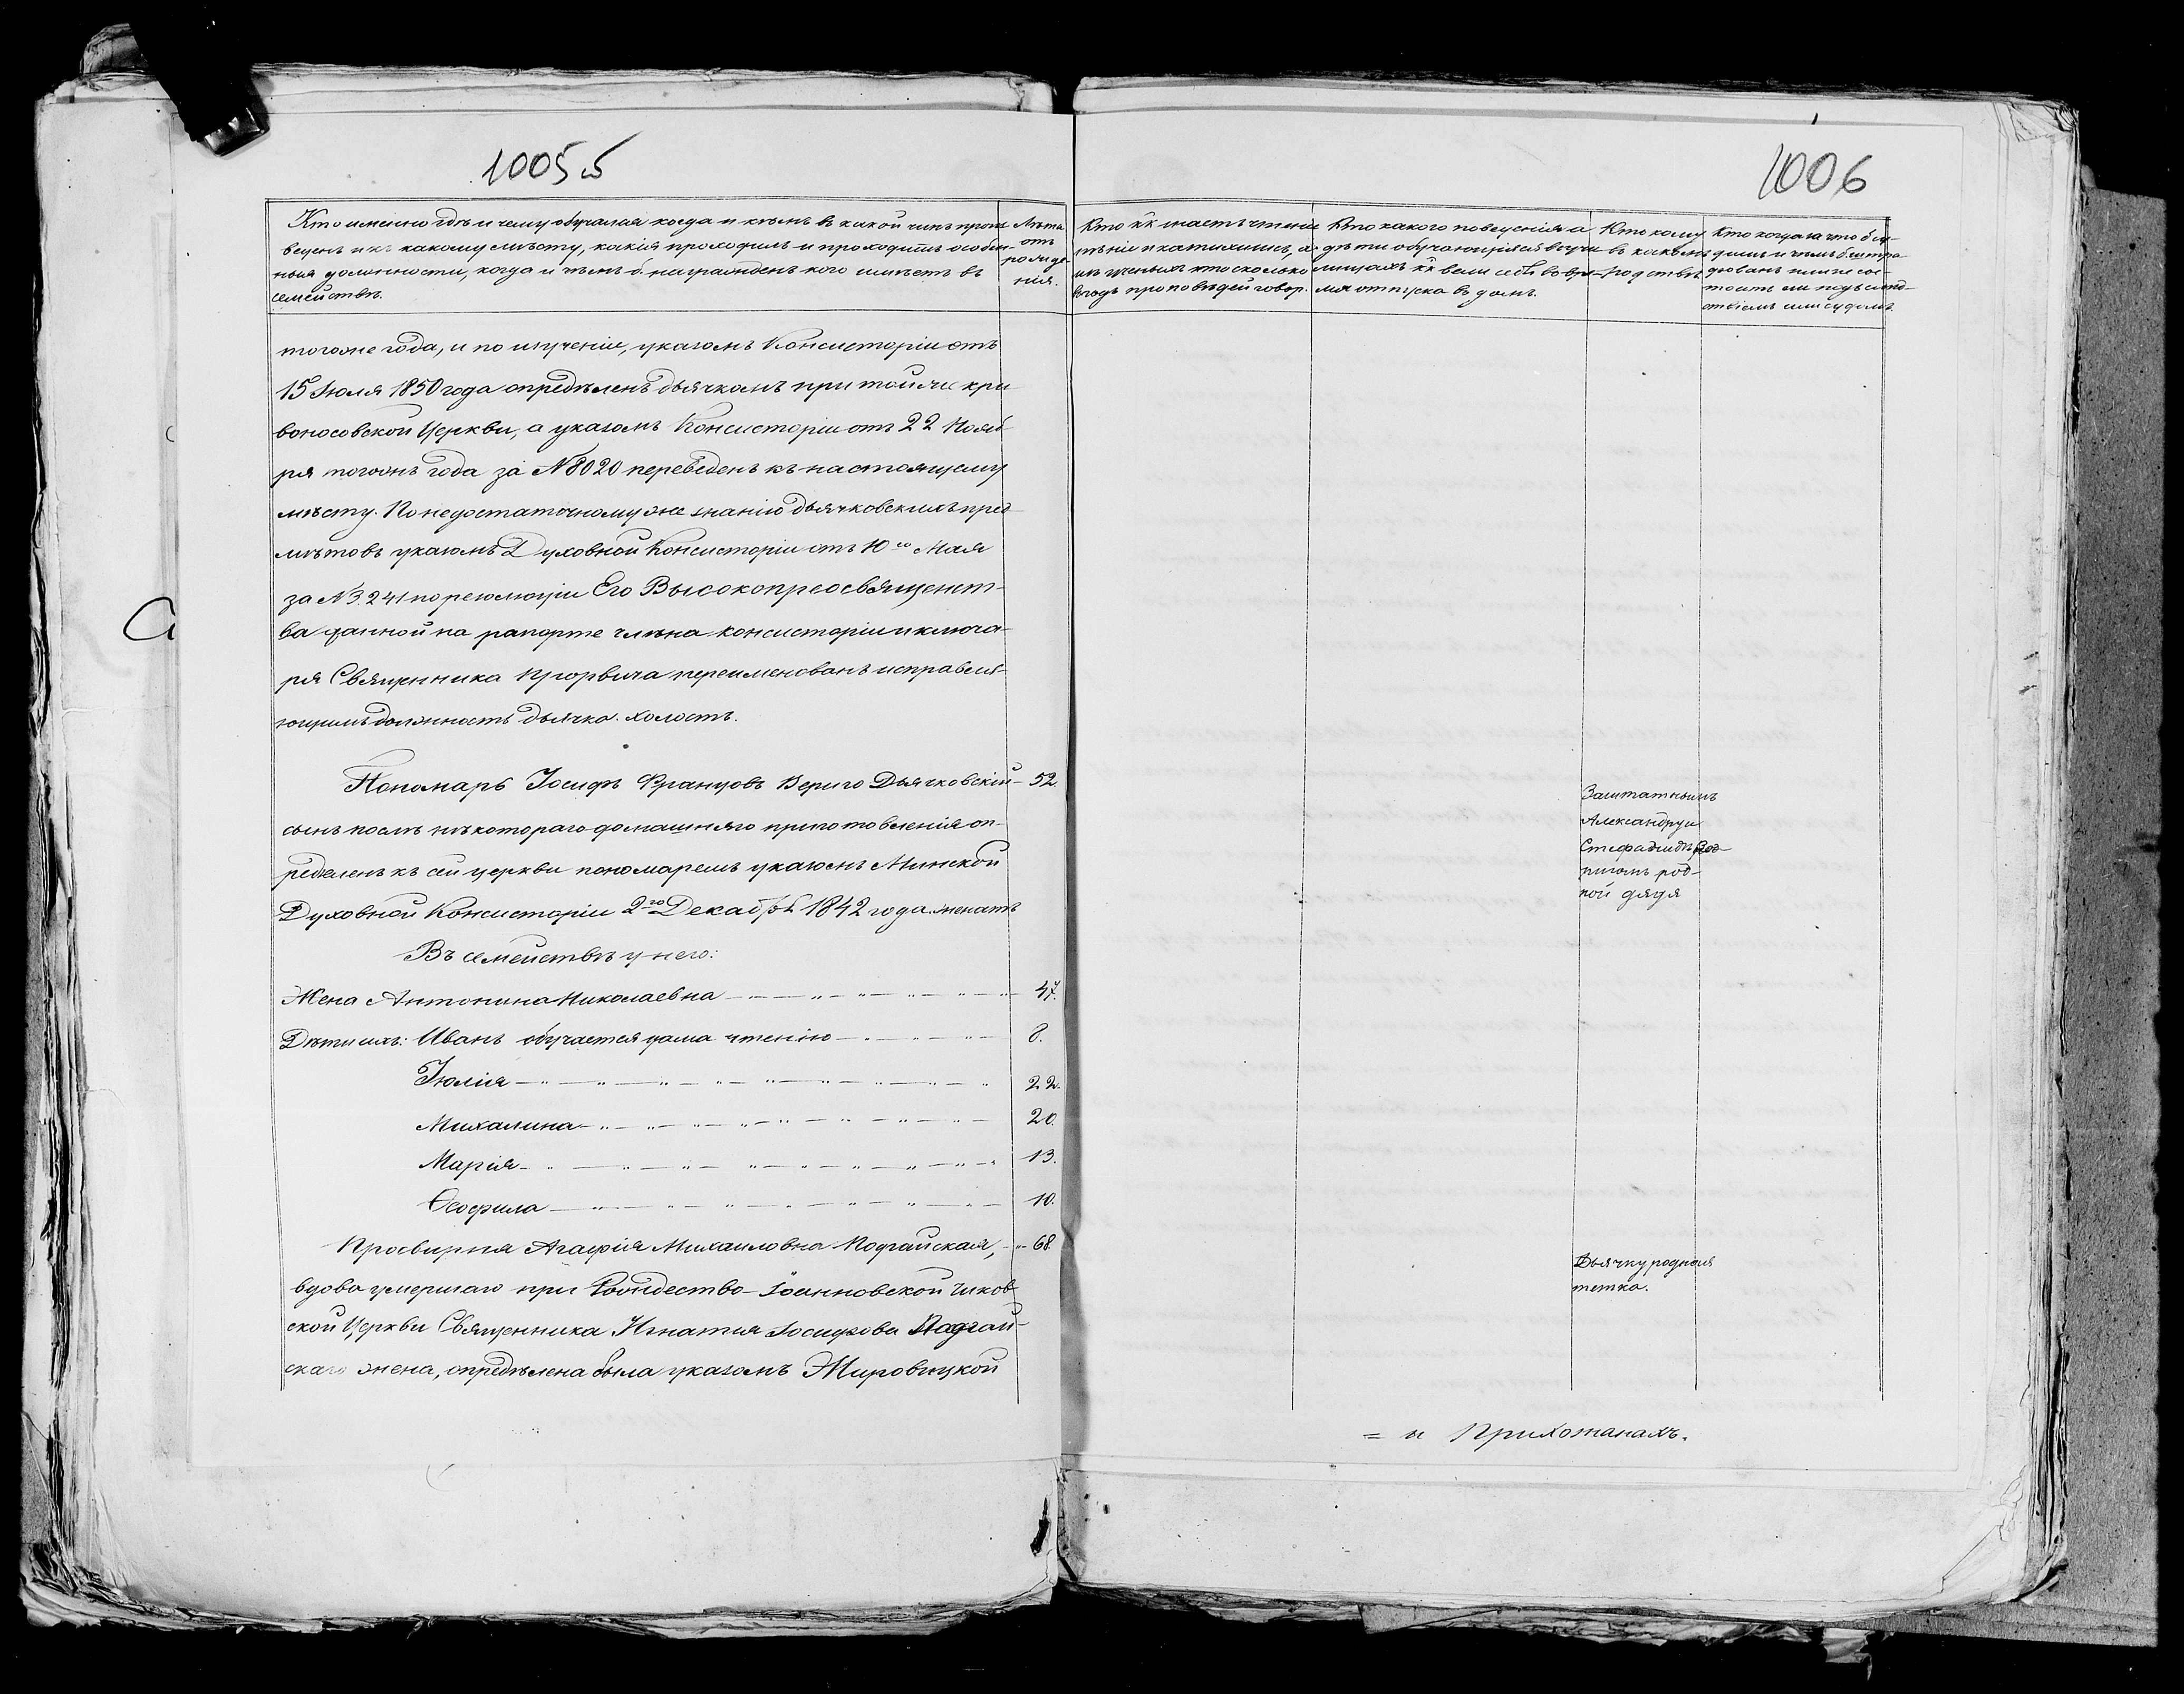 1005 б
1006
Кто именно гдѣ и чему обучался когда и кѣмъ въ какой чинъ произ
веденъ и къ какому мѣсту, какія проходилъ и проходитъ особен-
ныя должности, когда и чѣмъ б. награжденъ кого имѣетъ въ
семействѣ.
Лѣта
отъ
рожде-
нія.
Кто кк знаетъ чтеніе
пѣніе и катихизисъ, а
изъ ученыхъ кто сколько
въ годъ проповѣдей говор.
Кто какого поведенія а
дѣти обучающіяся въ учи-
лищахъ кк вели себя во вре-
мя отпуска въ домъ.
Кто кому
въ какомъ
родствѣ
Кто когда за что б су-
димъ и чѣмъ б. штра-
фованъ или не сос-
тоитъ ли подъ слѣд-
ствіемъ или судомъ.
тогоже года, и по изученіи, указомъ Консисторіи отъ
15 Июля 1850 года опредѣленъ дьячкомъ при той же кри
воносовской Церкви, а указомъ Консисторіи отъ 22 Нояб-
ря тогожъ года за № 8020 переведенъ къ настоящему
мѣсту. По недостаточному же знанію дьячковскихъ пред-
мѣтовъ указомъ Духовной Консисторіи отъ 10го Мая
за № 3.241 по резолюціи Его Высокопреосвященст-
ва данной на рапорте члѣна консисторіи и ключа-
ря Священника переименованъ исправля-
ющимъ должность дьячка. холостъ.
Пономарь Іосифъ Францовъ Вериго Дьячковскій - 52.
сынъ послѣ нѣкотораго домашняго приготовленія оп-
редѣленъ къ сей церкви пономаремъ указомъ Минской
Духовной Консисторіи 2го Декабря 1842 года. женатъ
Заштатнымъ
Александру и
родной дядя
Въ семействѣ у него:
Жена Антонина Николаевна 47.
Дѣти ихъ: Иванъ обучается дома чтенію 8.
Іюлія 22.
Михалина 20.
Марія 13.
Ѳеофила 10.
Просвирня Агафія Михаиловна Подгайская, 68.
вдова умершаго при Рождество-Іоанновской Чиков
ской Церкви Священника Игнатія Іосифова Подгай-
скаго жена, опредѣлена была указомъ Жировицкой
Дьячку родная
тетка.
= и Прихожанахъ.